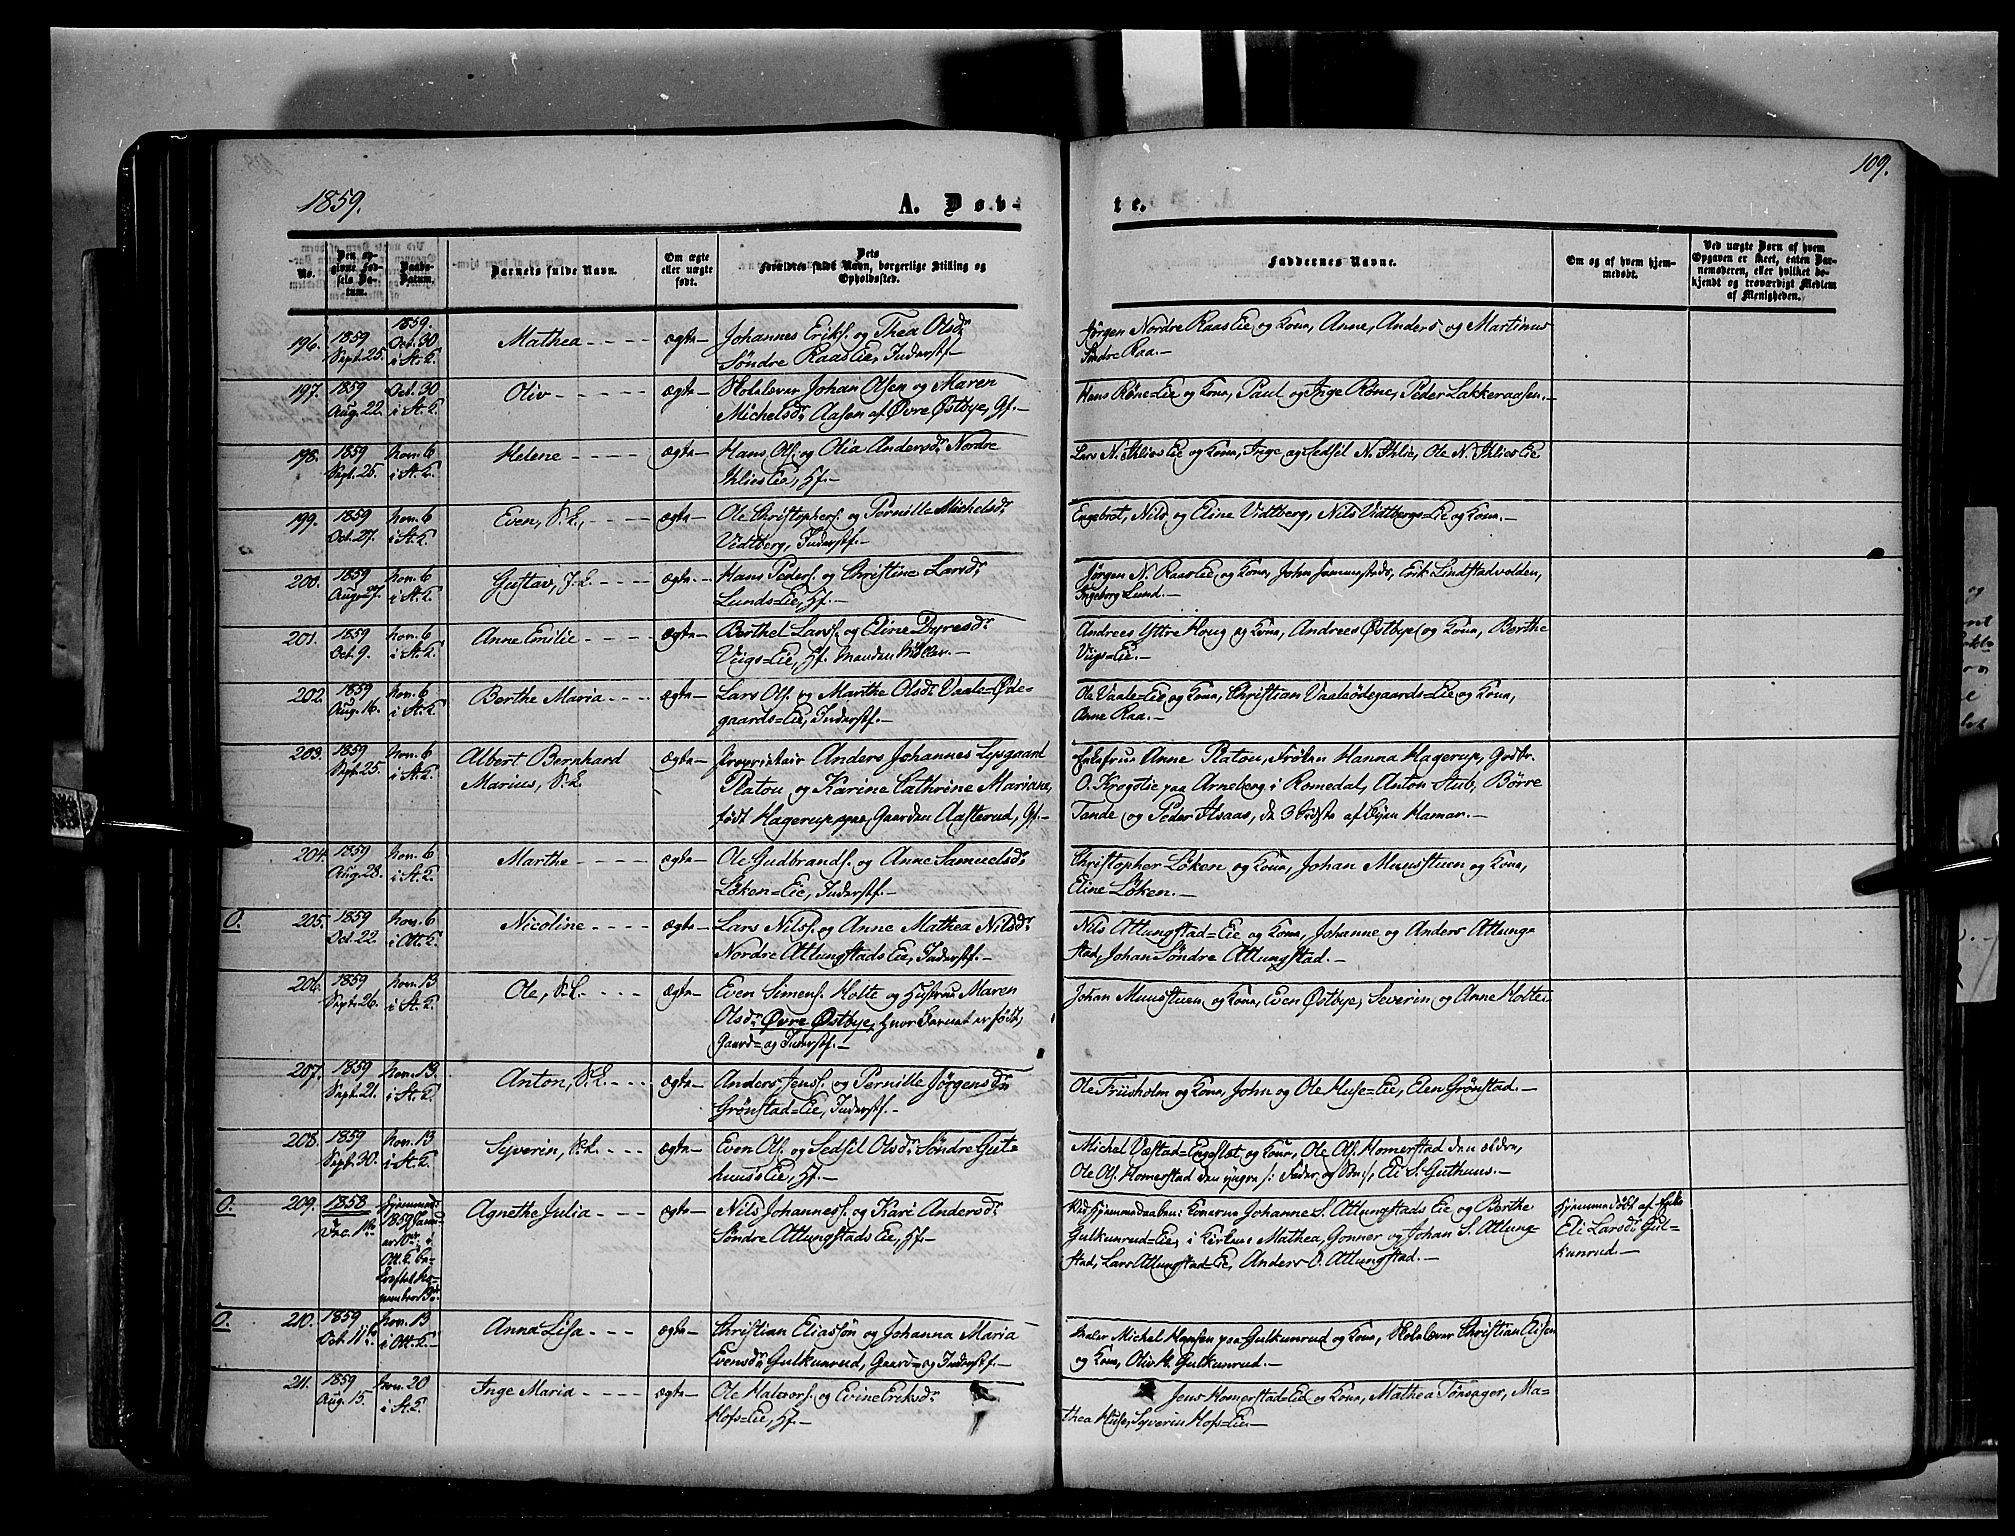 109.
1859.
A. Døb-
te.
No.
Den op-
givne Fød-
sels Da-
tum.
Daabs-
Datum.
Barnets fulde Navn.
Om ægte
eller uægte
født.
Dets
Forældres fulde Navn, borgerlige Stilling og
Opholdssted.
Faddernes Navne.
Om og af hvem hjem-
medøbt.
Ved uægte Børn af hvem
Opgaven er skeet, enten Bar-
nemoderen, eller hvilket be-
kjendt og troværdigt Medlem
af Menigheden.
196. 1859 Sept. 25.
1859. Oct. 30 i St. K.
Mathea
ægte
Johannes Eriks. og Thea Olsdr.
Søndre Raas Eie, Inderstf.
Jørgen Nordre Raas Eie og Kona, Anne, Anders og Martinus
Søndre Raa.
197. 1859 Aug. 22.
Oct. 30 i St. K.
Oliv
ægte
Skolelærer Johan Olsen og Maren
Michelsdr. Aasen af Øvre Østbye, Gf.
Hans Røne=Eie og Kona, Paul og Inge Røne, Peder Lakkeraasen.
198. 1859 Sept. 25.
Nov. 6 i St. K.
Helene
ægte
Hans Ols. og Olia Andersdr. Nordre
Ihlies Eie, Hf.
Lars N. Ihlies Eie og Kona, Inge og Sedsil N. Ihlie, Ole N. Ihlies Eie
199. 1859 Oct. 27.
Nov. 6 i St. K.
Even,
ægte
Ole Christophers. og Pernille Michelsdr.
Vidtberg, Inderstf.
Engebret, Nils og Eline Vidtberg, Nils Vidtbergs=Eie og Kona.
200. 1859 Aug.
Nov. 6 i St. K.
Gustav,
ægte
Hans Peders. og Christine Larsdr.
Lunds=Eie, Hf.
Jørgen N. Raas Eie og Kona, John Sammenstads, Erik Lindstadvolden,
Ingeborg Lund.
201. 1859 Oct. 9.
Nov. 6 i St. K.
Anne Emilie
ægte
Berthel Lars. og Eline Dyresdr.
Viigs=Eie, Hf. Manden Møller.
Andreas Yttre Houg og Kona, Andreas Østbye og Kona, Berthe
Viigs=Eie.
202. 1859 Aug. 16.
Nov. 6 i St. K.
Berthe Maria
ægte
Lars Ols. og Marthe Olsdr. Vaale=Øde-
gaards=Eie, Inderstf.
Ole Vaale=Eie og Kona, Christian Vaaleødegaards=Eie og Kona,
Anne Raa.
203. 1859 Sept. 25.
Nov. 6 i St. K.
Albert Bernhard
Marius,
ægte
Proprietair Anders Johannes Lysgaard
Platou og Karine Cathrine Mariane,
født Hagerup, paa Gaarden Aasterud, Gf.
Anne Platou, Frøken Hanna Hagerup, Godbr.
O. Krogstie paa Arneberg i Romedal, Anton Stub, Børre
Tande og Peder Asaas, de 3 sidste af Byen Hamar.
204. 1859 Aug. 28.
Nov. 6 i St. K.
Marthe
ægte
Ole Gudbrands. og Anne Samuelsdr.
Løken=Eie, Inderstf.
Christopher Løken og Kona, Johan Muustuen og Kona,
Eline Løken.
O. 205. 1859 Oct. 22.
Nov. 6 i Ott. K.
Nicoline
ægte
Lars Nils. og Anne Mathea Nilsdr.
Nordre Atlungstads Eie, Inderstf.
Nils Atlungstad=Eie og Kona, Johanne og Anders Atlung-
stad, Johan Søndre Atlungstad.
206. 1859 Sept. 26.
Nov. 13 i St. K.
Ole,
ægte
Even Simens. Holte og Hustru Maren
Olsdr. Øvre Østbye, hvor Barnet er født,
Gaard= og Inderstf.
Johan Muustuen og Kona, Even Østbye, Severin og Anne Holte.
207. 1859 Sept. 21.
Nov. 13. i St. K.
Anton,
ægte
Anders Jens. og Pernille Jørgensdr.
Grønstad=Eie, Inderstf.
Ole Friisholm og Kona, John og Ole Huse=Eie, Elen Grønstad.
208. 1859 Sept. 30.
Nov. 13 i St. K.
Syverin,
ægte
Even Ols. og Sedsil Olsdr. Søndre Gut-
huus Eie, Hf.
Michel Væstad=Engeslet og Kona, Ole Ols. Homerstad den ældre,
Ole Ols. Homerstad den yngre, Eli S. Guthuus.
O. 209. 1858 Dec. 14.
1859
Agnethe Julia
ægte
Nils Johannes. og Kari Andersdr.
Søndre Atlungstads Eie, Hf.
Ved Hjemmedaaben: Konerne Johanne S. Atlungstads Eie og Berthe
Gulkunrud=Eie, i Kirken: Mathea, Gonner og Johan S. Atlung-
stad, Lars Atlungstad=Eie, Anders O. Atlungstad.
Hjemmedøbt af
Eli Larsdr. Gul-
kunrud.
O. 210. 1859 Oct. 11te
Nov. 13 i Ott. K.
Anna Lisa
ægte
Christian Eliassøn og Johanna Maria
Evensdr. Gulkunrud, Gaard= og Inderstf.
Maler Michel Hansen paa Gulkunrud og Kona, Skolelærer Christian Olsen
og Kona, Oliv H. Gulkunrud.
211. 1859 Aug. 15.
Nov. 20 i St. K.
Inge Maria
ægte
Ole Halvors. og Evine Eriksdr.
Hofs=Eie, Hf.
Jens Homerstad=Eie og Kona, Mathea Tønsager, Ma=
thea Huse, Syverin Hofs=Eie.